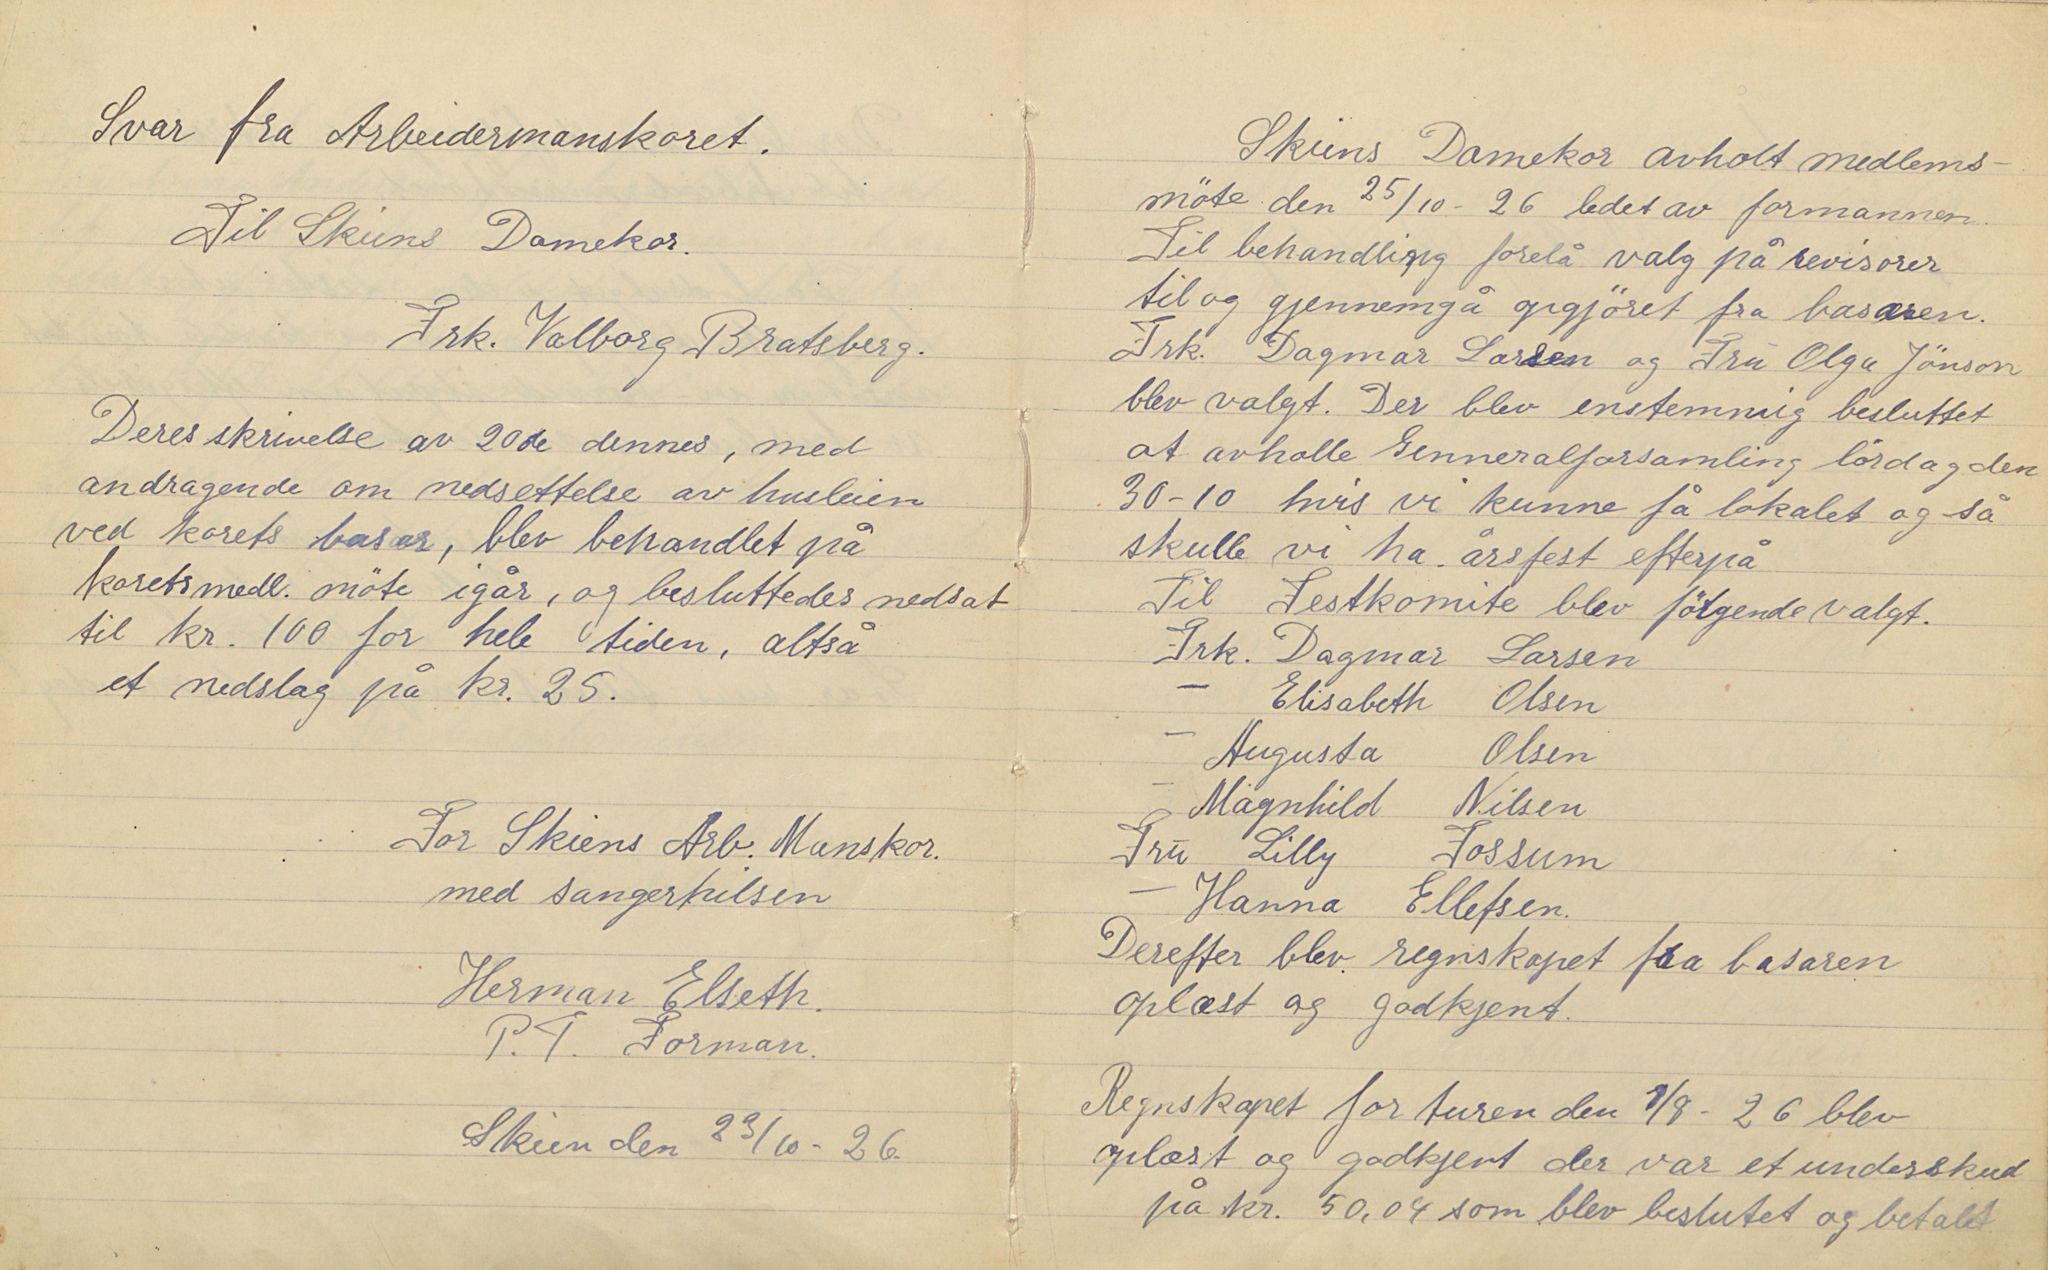 Svar fra Arbeidermanskoret.
Til Skiens Damekor.
Frk. Valborg Bratsberg.
Deres skrivelse av 20de dennes, med
andragende om nedsettelse av husleien
ved korets basar, blev behandlet på
korets medl. möte igår, og besluttedes nedsat
til kr. 100 for hele tiden, altså
et nedslag på kr. 25.
For Skiens Arb. Manskor.
med sangerhilsen
Herman Elseth.
P.T. Forman.
Skien den 23/10 - 26.
Skiens Damekor avholt medlems-
möte den 25/10 - 26 ledet av formannen.
Til behandling forelå valg på revisorer
til og gjennemgå opgjöret fra basaren.
Frk. Dagmar Larsen og Fru Olga Jönson
blev valgt. Der blev enstemmig besluttet
at avholle Genneralforsamling lördag den
30-10 hvis vi kunne få lokalet og så
skulle vi ha årsfest efterpå
Til Festkomite blev fölgende valgt.
Frk. Dagmar Larsen
- Elisabeth Olsen
- Augusta Olsen
- Magnhild Nilsen
Fru Lilly Fossum
- Hanna Ellefsen.
Derefter blev regnskapet fra basaren
oplæst og godkjent.
Regnskapet for turen den 1/8 - 26 blev
oplæst og godkjent der var et underskud
på kr. 50,04 som blev beslutet og betalt